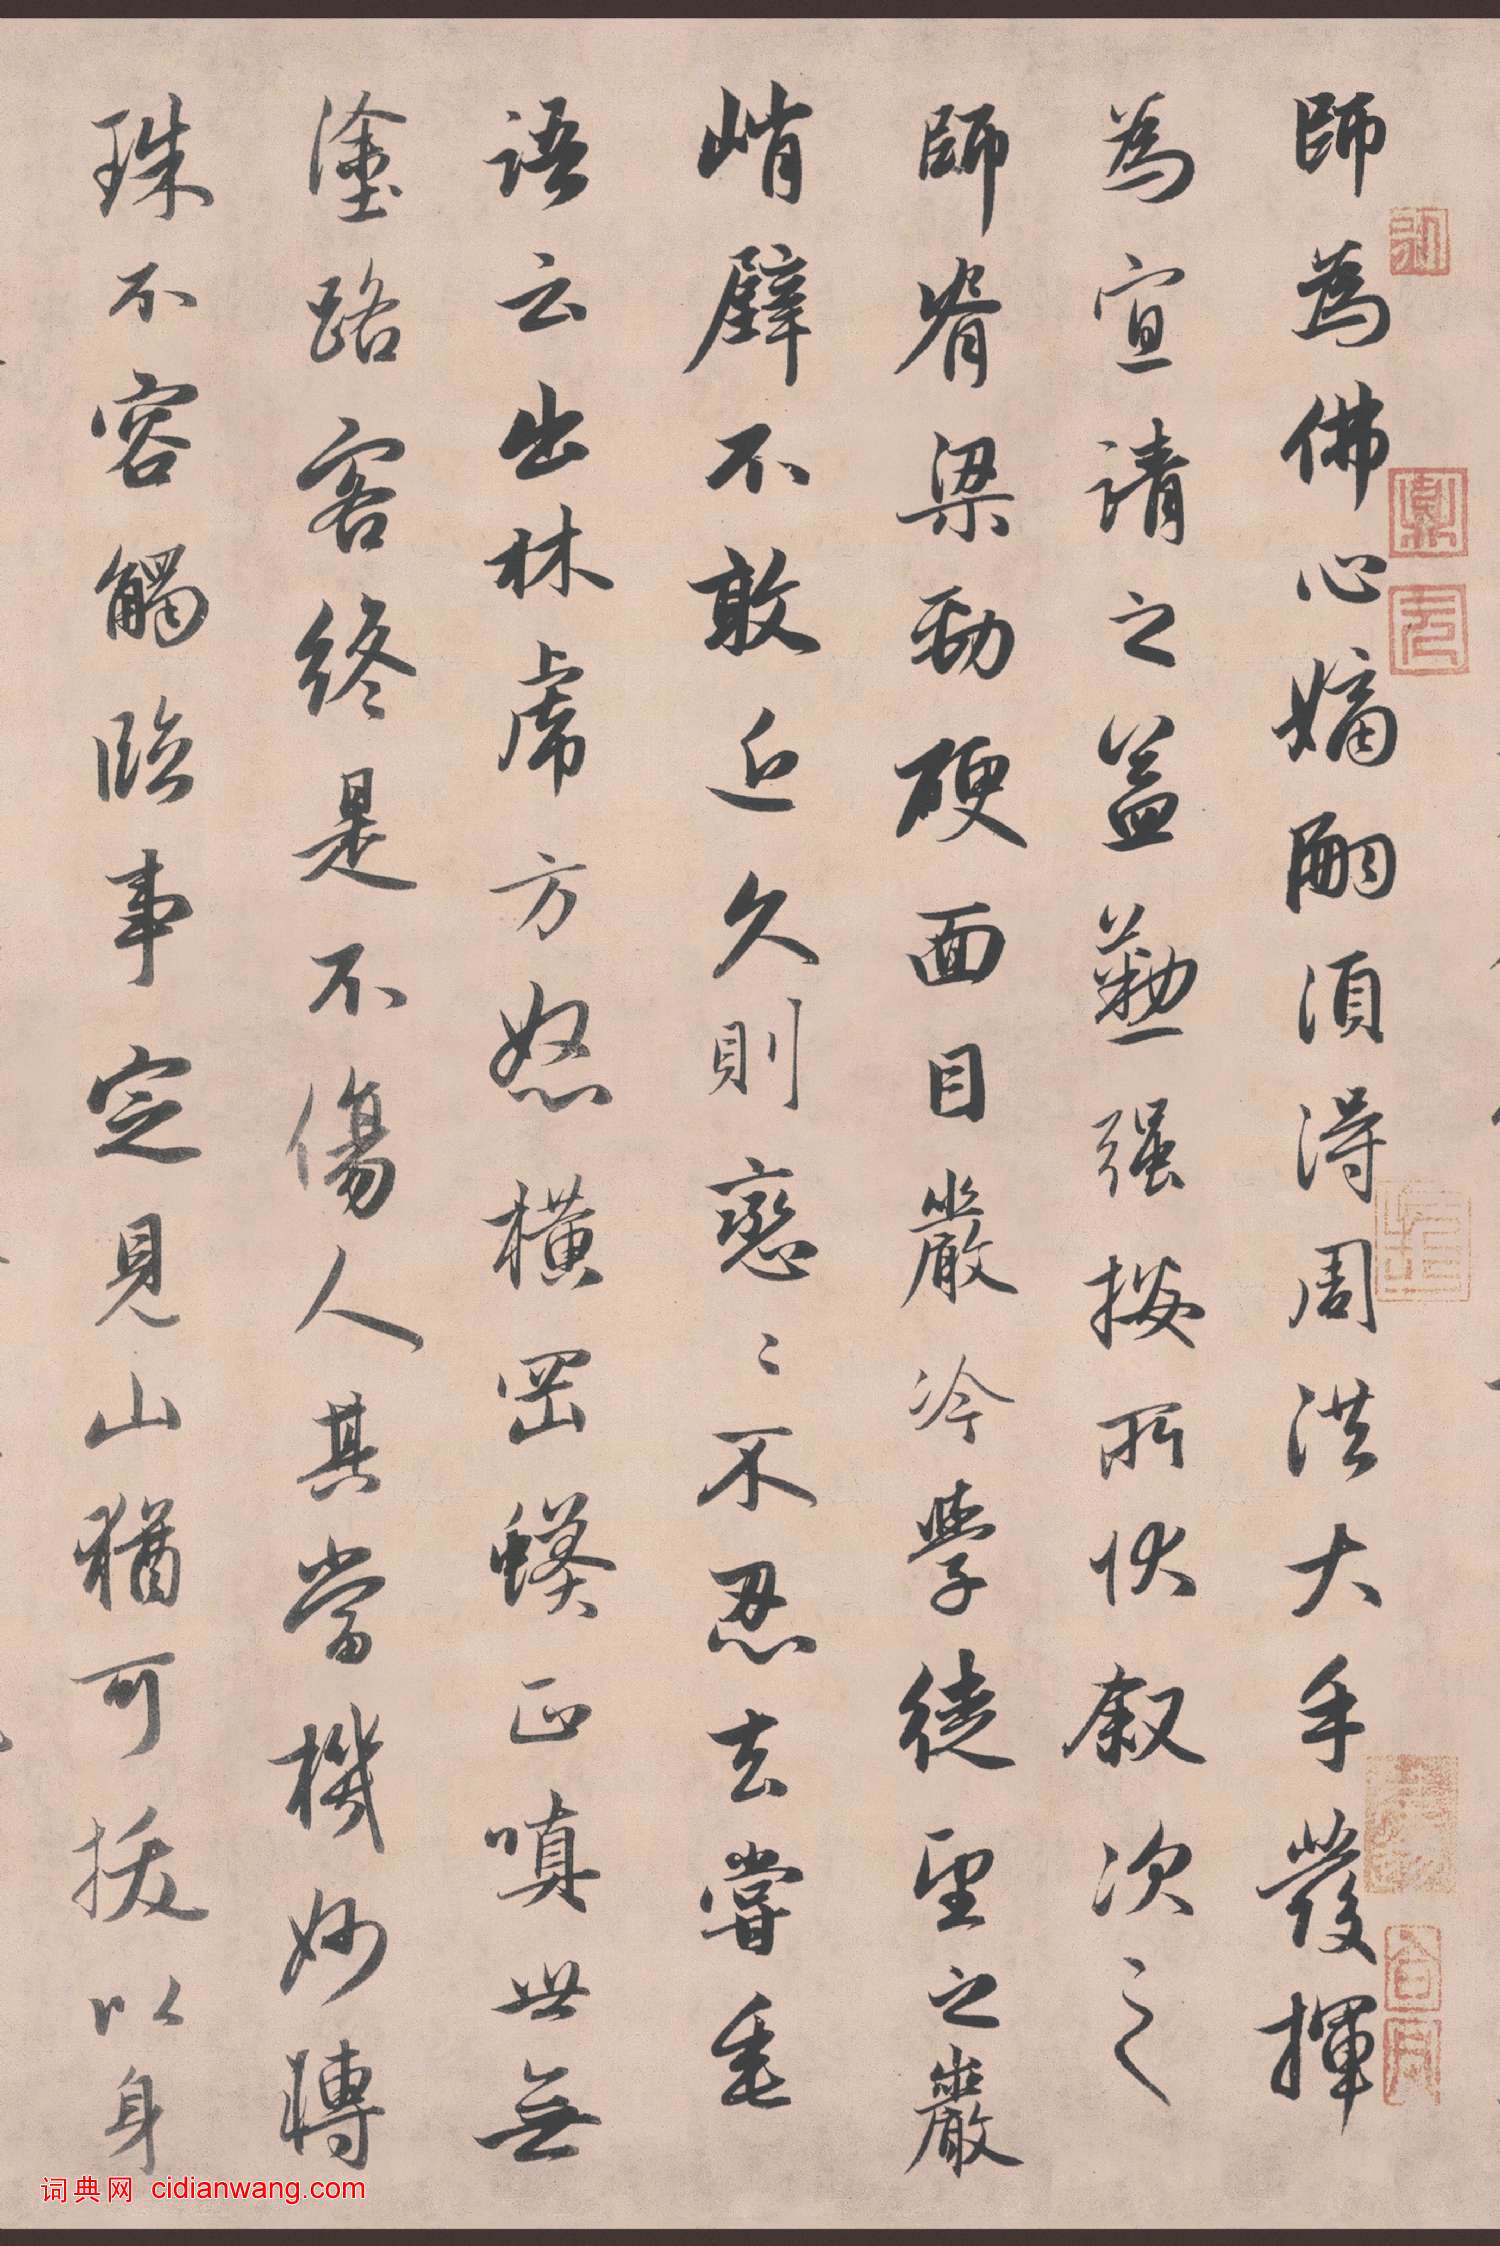 師為佛心嫡嗣須得周洪大手發揮
為宣請之蓋勤强授所伏叙次之
師脊梁勁硬面目嚴冷學徒望之嚴
峭壁不敢近久則戀〻不忍去嘗垂
語云出林虎方怒橫罡蟒正嗔世無
塗路客終是不傷人其當機妙轉
珠不容觸臨事定見山猶可拔以身
词典网 cidianwang.com